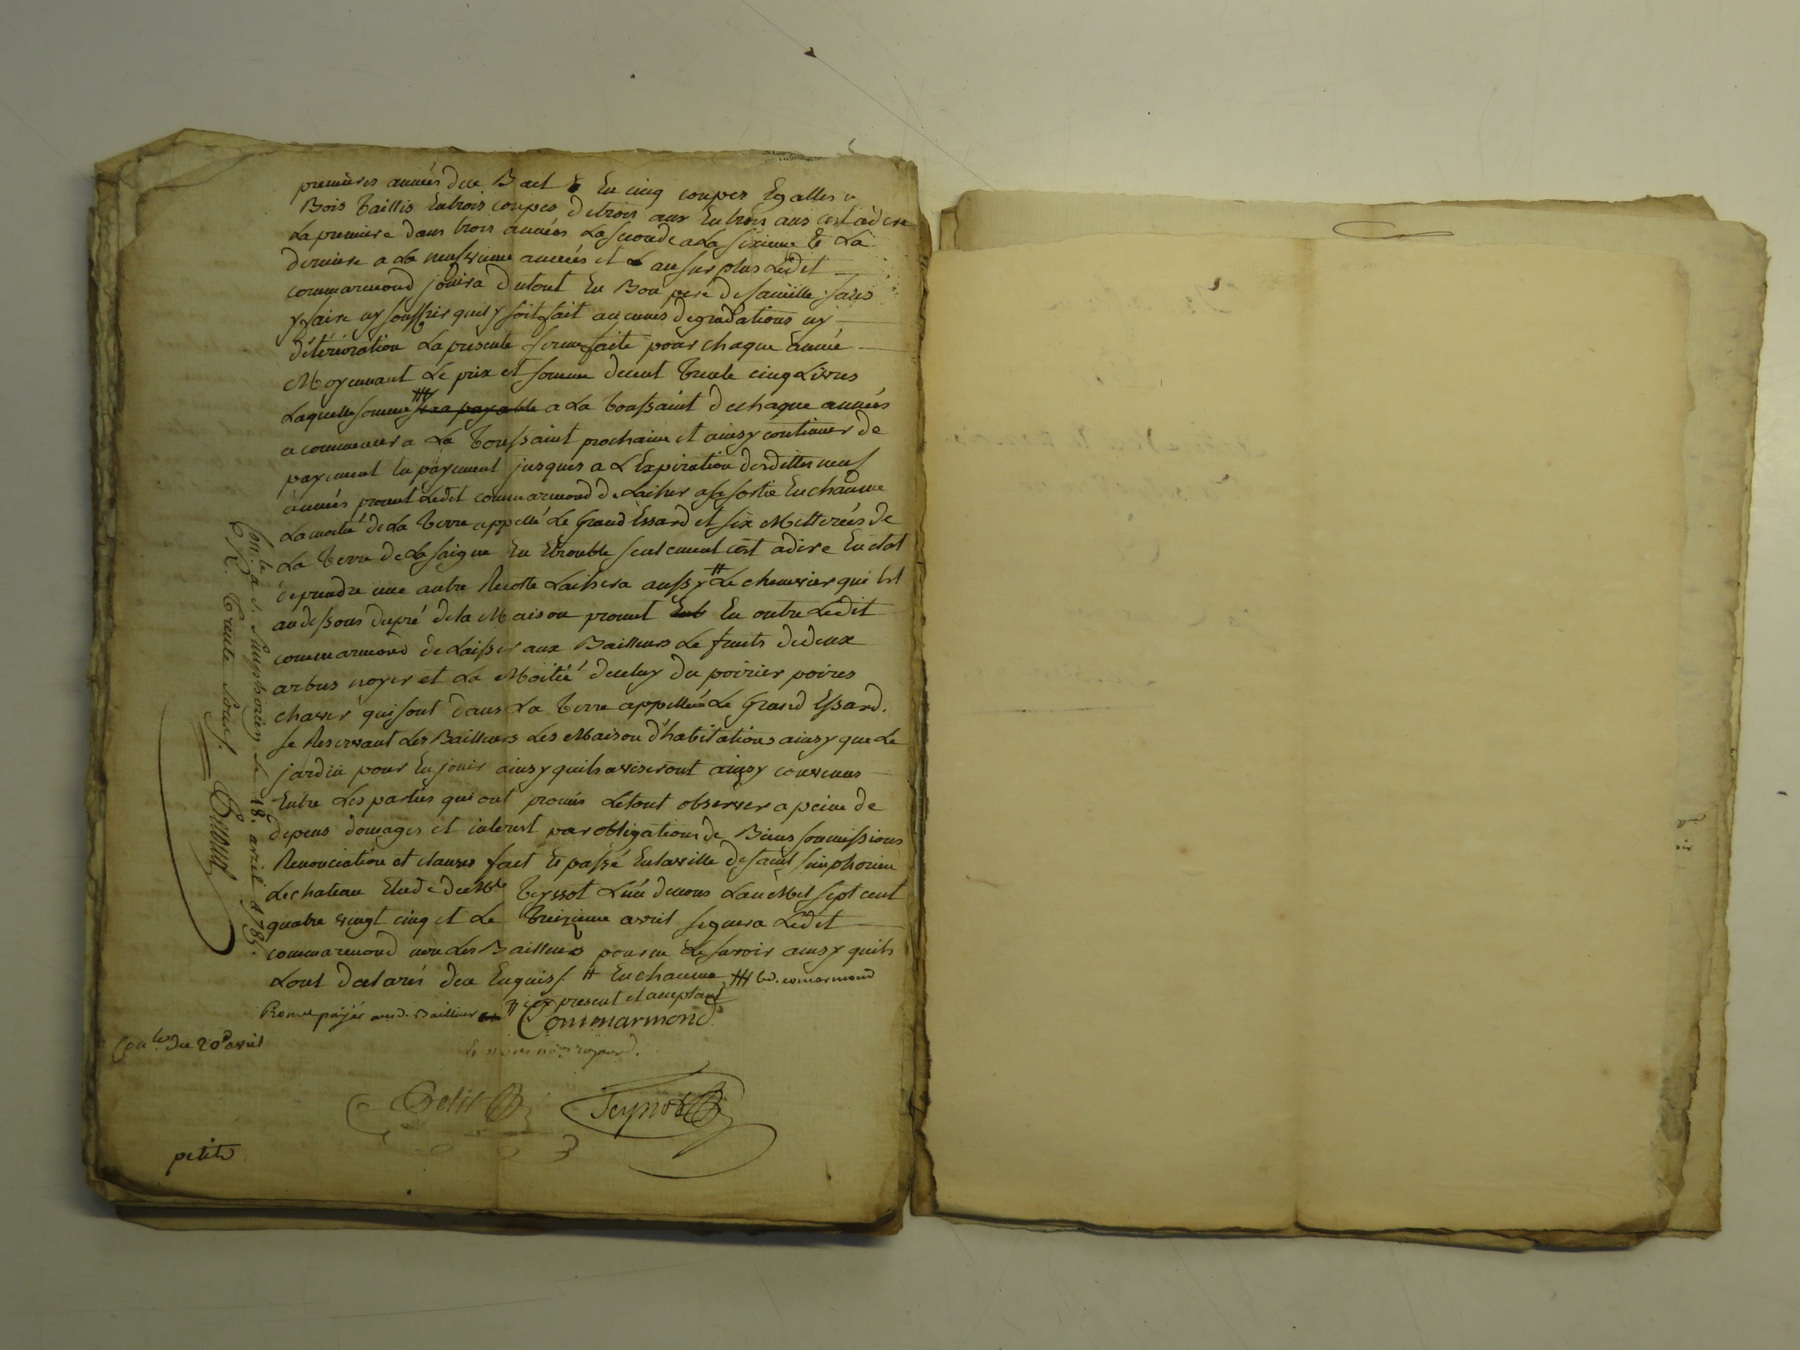 premieres années due Bail & En cinq coupes Egalles
Bois Taillis Entrois coupes detrois ans Entrois ans cest adire
La premiere dans trois années La seconde a La sixieme & La
derniere a La neufvieme années et au surplus Ledit
commarmond jouira dutout En Bon pere defamille sans
y faire ny souffrir quil y soit fait aucunes degradations ny
détérioration La presente ferme faite pour chaque Année
Moyennant Le prix et somme decent Trente cinq Livres
Laquelle somme sera payable a La toussaint dechaque années
a commencer a La Toussaint prochaine et ainsy continuer de
payement En payement jusques a L'Expiration desdittes neuf
années promet Ledit commarmond de Laisser a sa sortie Enchaume
La moitié de La Terre appellé Le Grand Essard et six Metterées de
La Terre de La saigne En Etrouble seulement cest adire En etat
deprendre une autre Recolte Laissera aussy # Le chenevier qui Est
audessous dupré dela Maison promet En outre Ledit
commarmond de Laisser aux Bailleurs Le fruits dedeux
arbres noyer et La Moitié deceluy du poirier poires
qui sont dans La Terre appellée Le Grand Essard.
se Reservant Les Bailleurs Les Maison d'habitations ainsy que Le
jardin pour En jouir ainsy quils aviseront ainsy convenus
Entre Les parties qui ont promis Letout observer a peine de
depens domages et interest par obligations de Biens soumissions
Renonciation et clauses fait & passé En la ville de saint simphorien
Le chateau Etude de Me Teyssot L'un denous L'an Mil sept cent
quatre vingt cinq et Le Treizieme avril signera Ledit
commarmond non Les Bailleurs pour ne Le savoir ainsy quils
L'ont declarés dea Enquis # En chaume ### Led. comarmond
icy present et acceptant
payer aud. Bailleur
Commarmond
Petit
Teyssot
Con. le 20 avril
petit
Con. le a s. simphorien Le 18. avril 1785.
R. Trente sous.